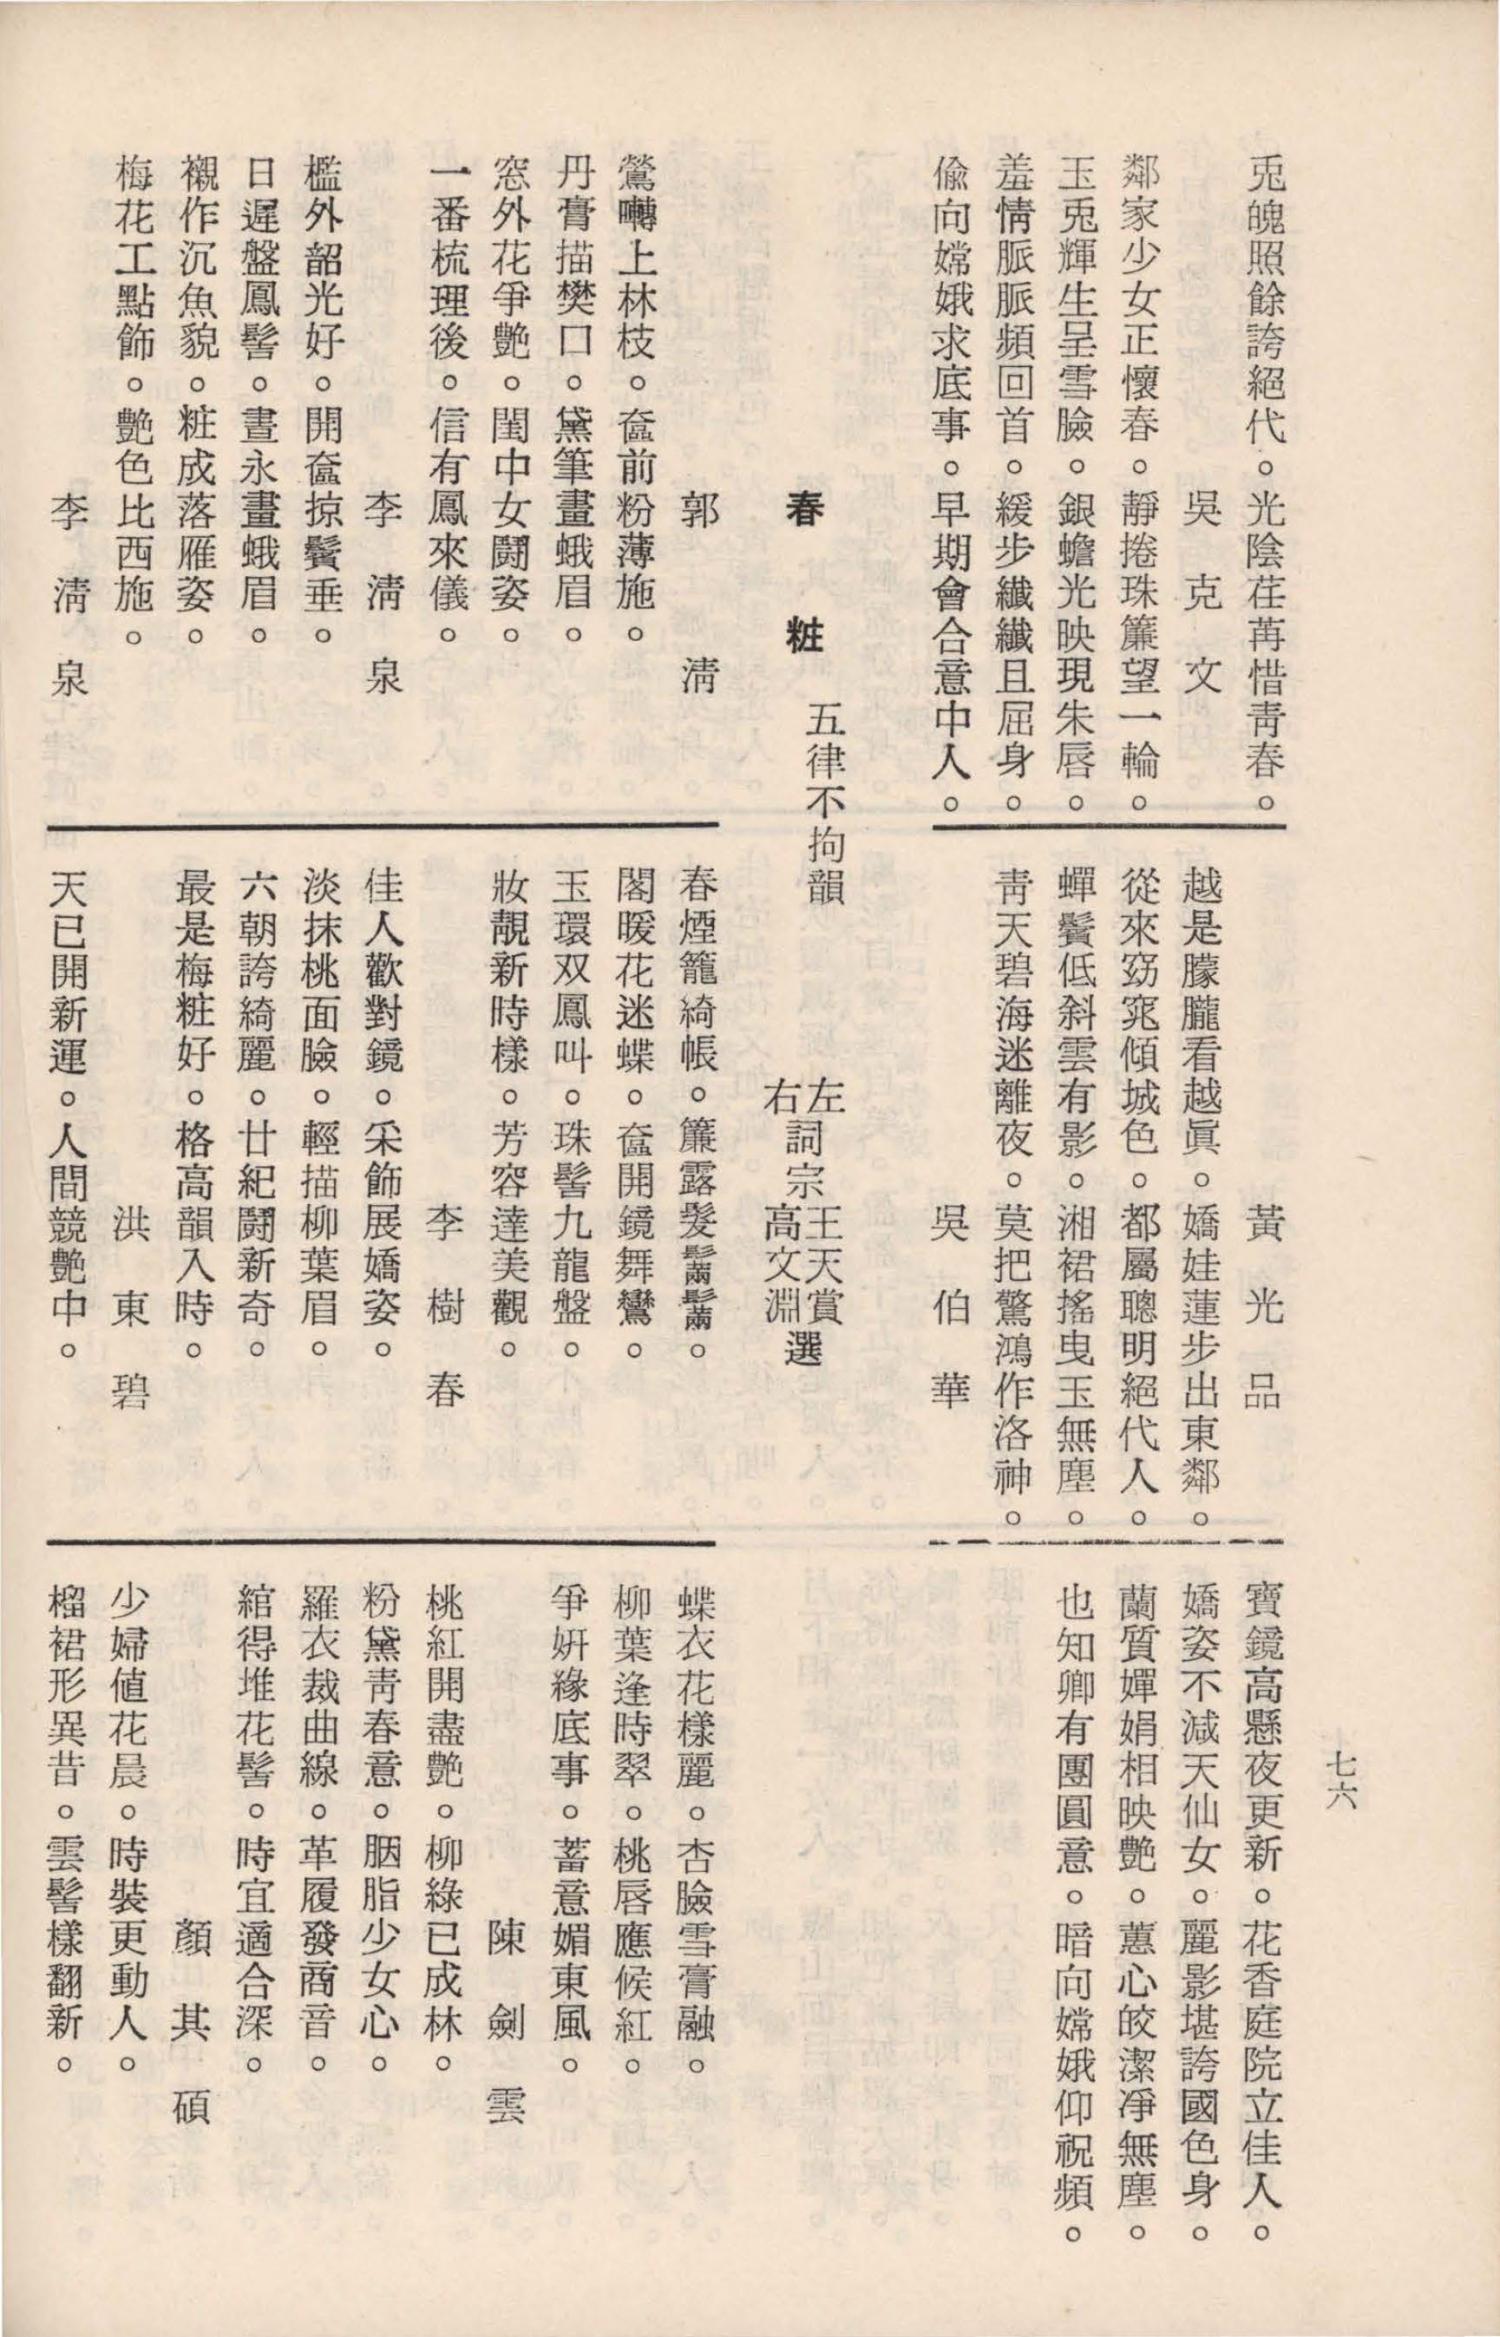 七六
兎魄照餘誇絕代。光陰荏苒惜靑春。
吳克文
鄰家少女正懷春。靜捲珠簾望一輪。
玉兎輝生呈雪臉。銀蟾光映現朱唇。
羞情脈脈頻回首。緩步纖纖且屈身。
偸向嫦娥求底事。早期會合意中人。
黃光品
越是朦朧看越眞。嬌娃蓮步出東鄰。
從來窈窕傾城色。都屬聰明絕代人。
蟬鬢低斜雲有影。湘裙搖曳玉無塵。
靑天碧海迷離夜。莫把驚鴻作洛神。
吳伯華
寶鏡高懸夜更新。花香庭院立佳人。
嬌姿不減天仙女。麗影堪誇國色身。
蘭質嬋娟相映艷。蕙心皎潔凈無塵。
也知卿有團圓意。暗向嫦娥仰祝頻。
春粧 五律不拘韻
左詞宗王天賞選
右詞宗高文淵選
郭淸
鶯囀上林枝。奩前粉薄施。
丹膏描樊口。黛筆畫蛾眉。
窓外花爭艷。閨中女鬪姿。
一番梳理後。信有鳳來儀。
李淸泉
檻外韶光好。開奩掠鬢垂。
日遲盤鳳髻。晝永畫蛾眉。
襯作沉魚貌。粧成落雁姿。
梅花工點飾。艷色比西施。
李淸泉
春煙籠綺帳。簾露髮鬅鬅。
閣暖花迷蝶。奩開鏡舞鸞。
玉環双鳳叫。珠髻九龍盤。
妝靚新時樣。芳容達美觀。
李樹春
佳人歡對鏡。采飾展嬌姿。
淡抹桃面臉。輕描柳葉眉。
六朝誇綺麗。廿紀鬪新奇。
最是梅粧好。格高韻入時。
洪東碧
天已開新運。人間競艷中。
蝶衣花樣麗。杏臉雪膏融。
柳葉逢時翠。桃唇應候紅。
爭姸緣底事。蓄意媚東風。
陳劍雲
桃紅開盡艷。柳綠已成林。
粉黛靑春意。胭脂少女心。
羅衣裁曲線。革履發商音。
綰得堆花髻。時宜適合深。
顏其碩
少婦値花晨。時裝更動人。
榴裙形異昔。雲髻樣翻新。